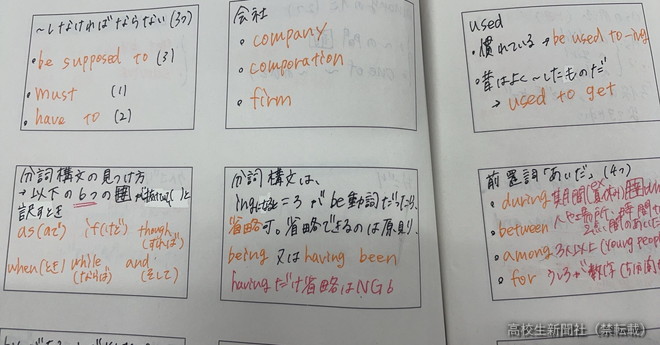 〜しなければならない(3つ)
・be supposed to (3)
・must (1)
・have to (2)
会社
・company
・comporation
・firm
used
・慣れている → be used to -ing
・昔はよく〜したものだ
→ used to get
分詞構文の見つけ方
→以下の6つの
訳すとき
as(ので) if(けど) though
when(とき) while and
(ならば) (そして)
分詞構文は、
be動詞だったら、
省略可。省略できるのは原則、
being 又は having been
havingだけ省略はNG
前置詞「あいだ」(4つ)
・during 期間
・between
・among 3人以上 (young people
・for うしろが数字
高校生新聞社(禁転載)